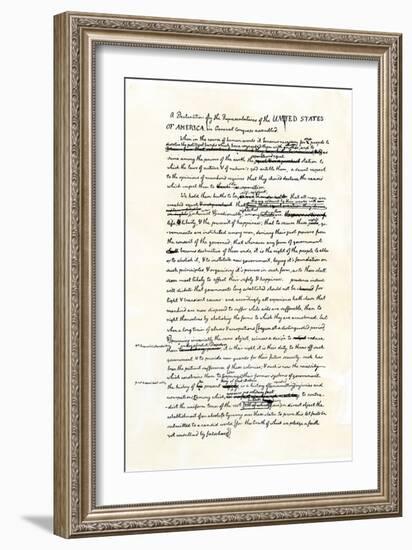 A Declaration by the Representatives of the UNITED STATES
OF AMERICA, in General Congress assembled.
When in the course of human events it becomes necessary for a people to
assume among the powers of the earth the station to
which the laws of nature & of nature's god entitle them, a decent respect
to the opinions of mankind requires that they should declare the causes
which impel them to the
We hold these truths to be that all men are
created equal
life, & liberty, & the pursuit of happiness; that to secure these, go-
-vernments are instituted among men, deriving their just powers from
the consent of the governed; that whenever any form of government
becomes destructive of these ends, it is the right of the people to alter
or to abolish it, & to institute new government, laying it's foundation on
such principles & organising it's powers in such form, as to them shall
seem most likely to effect their safety & happiness. prudence indeed
will dictate that governments long established should not be changed for
light & transient causes: and accordingly all experience hath shewn that
mankind are more disposed to suffer while evils are sufferable, than to
right themselves by abolishing the forms to which they are accustomed. but
when a long train of abuses & usurpations [begun at a distinguished period
&] pursuing invariably the same object, evinces a design to reduce
them it is their right, it is their duty, to throw off such
government & to provide new guards for their future security. such has
been the patient sufferance of these colonies; & such is now the necessity
which constrains them to their former systems of government.
the history of present is a history of injuries and
usurpations [among which
-dict the uniform tenor of the rest in direct object the
establishment of an absolute tyranny over these states. to prove this let facts be
submitted to a candid world, [for the truth of which we pledge a faith
yet unsullied by falsehood]